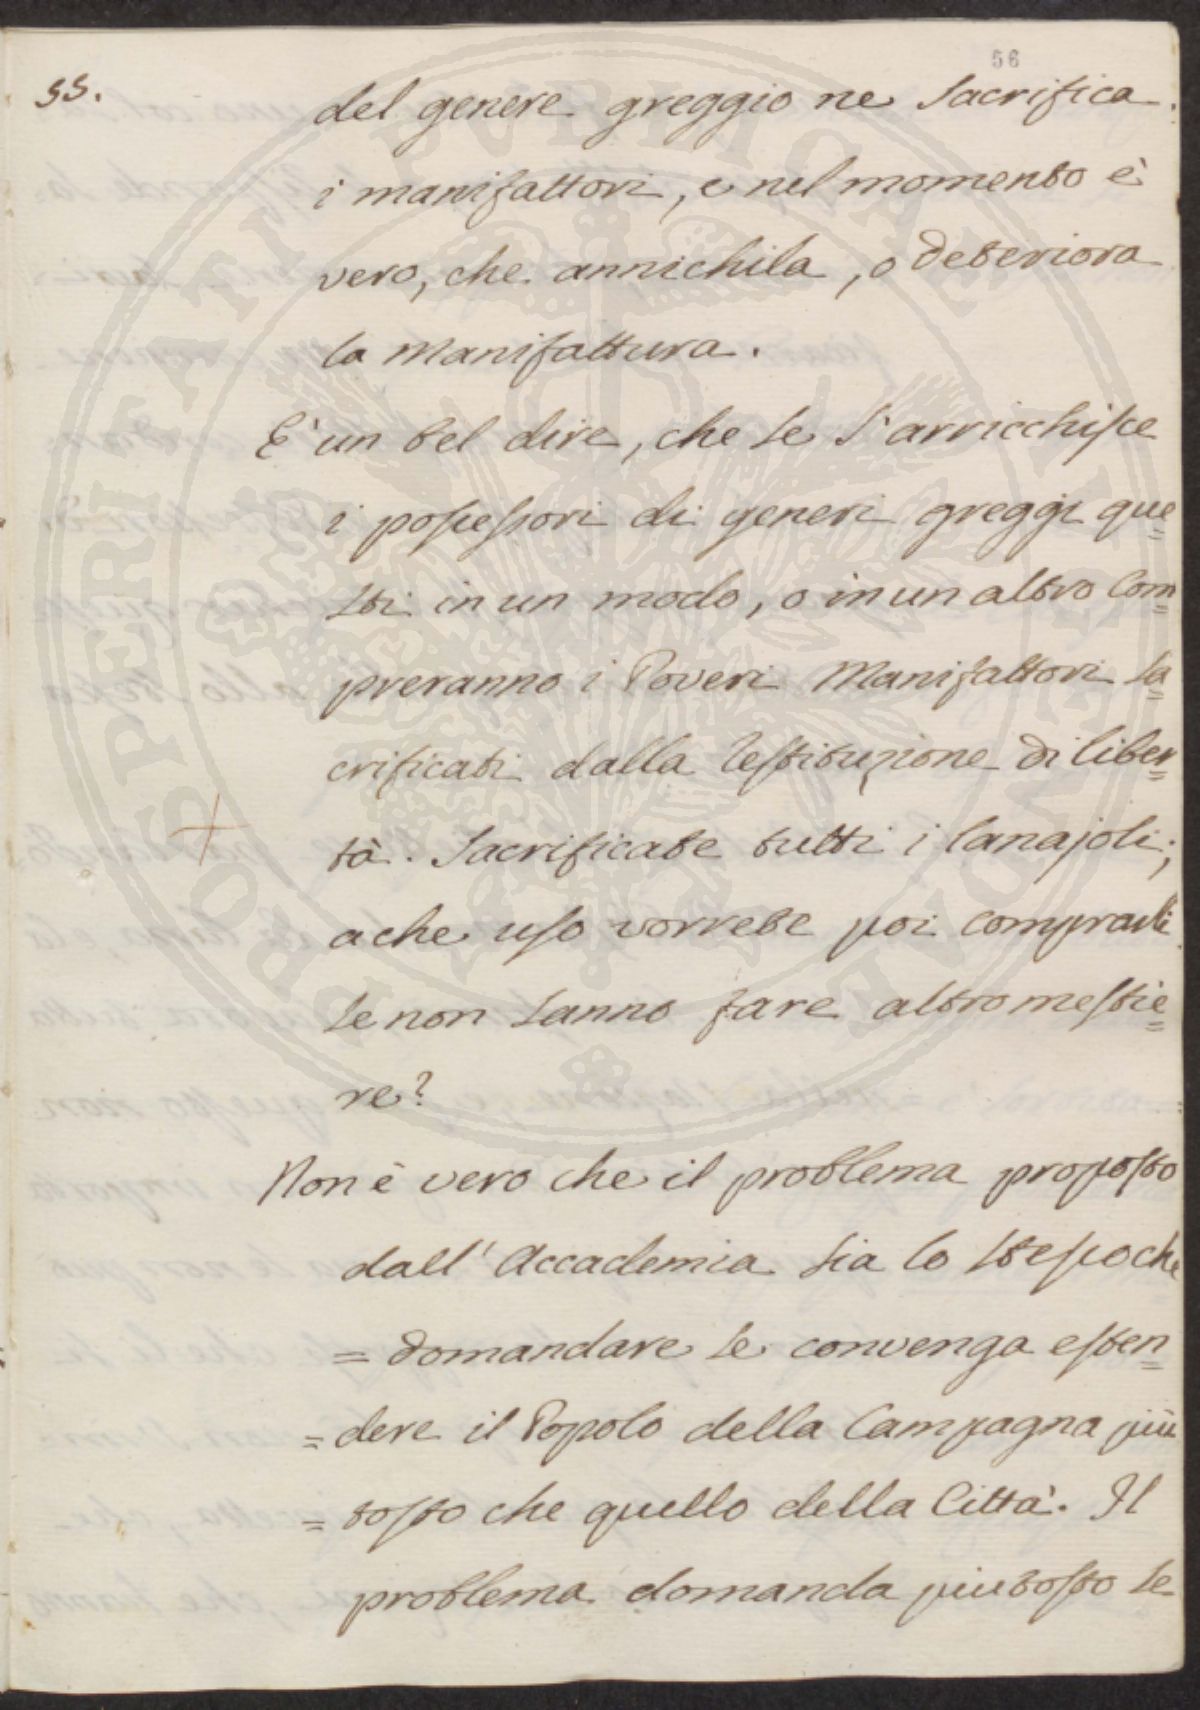 56
55.
del genere greggio ne Sacrifica
i manifattori, e nel momento è
vero, che annichila, o deteriora
la Manifattura.
E' un bel dire, che se s'arricchisce
i possessori di generi greggi que=
sti in un modo, o in un altro Com=
preranno i Poveri Manifattori sa=
crificati dalla restituzione di liber=
tà. Sacrificate tutti i lanajoli;
a che uso vorrete poi comprarli
se non sanno fare altro mestie=
re?
Non è vero che il problema proposto
dall' Accademia sia lo stesso che
= domandare se convenga esten=
= dere il Popolo della Campagna piu
= tosto che quello della Città. Il
problema domanda piutosto se
PROSPERITATI PVBLICAE AVGENDAE